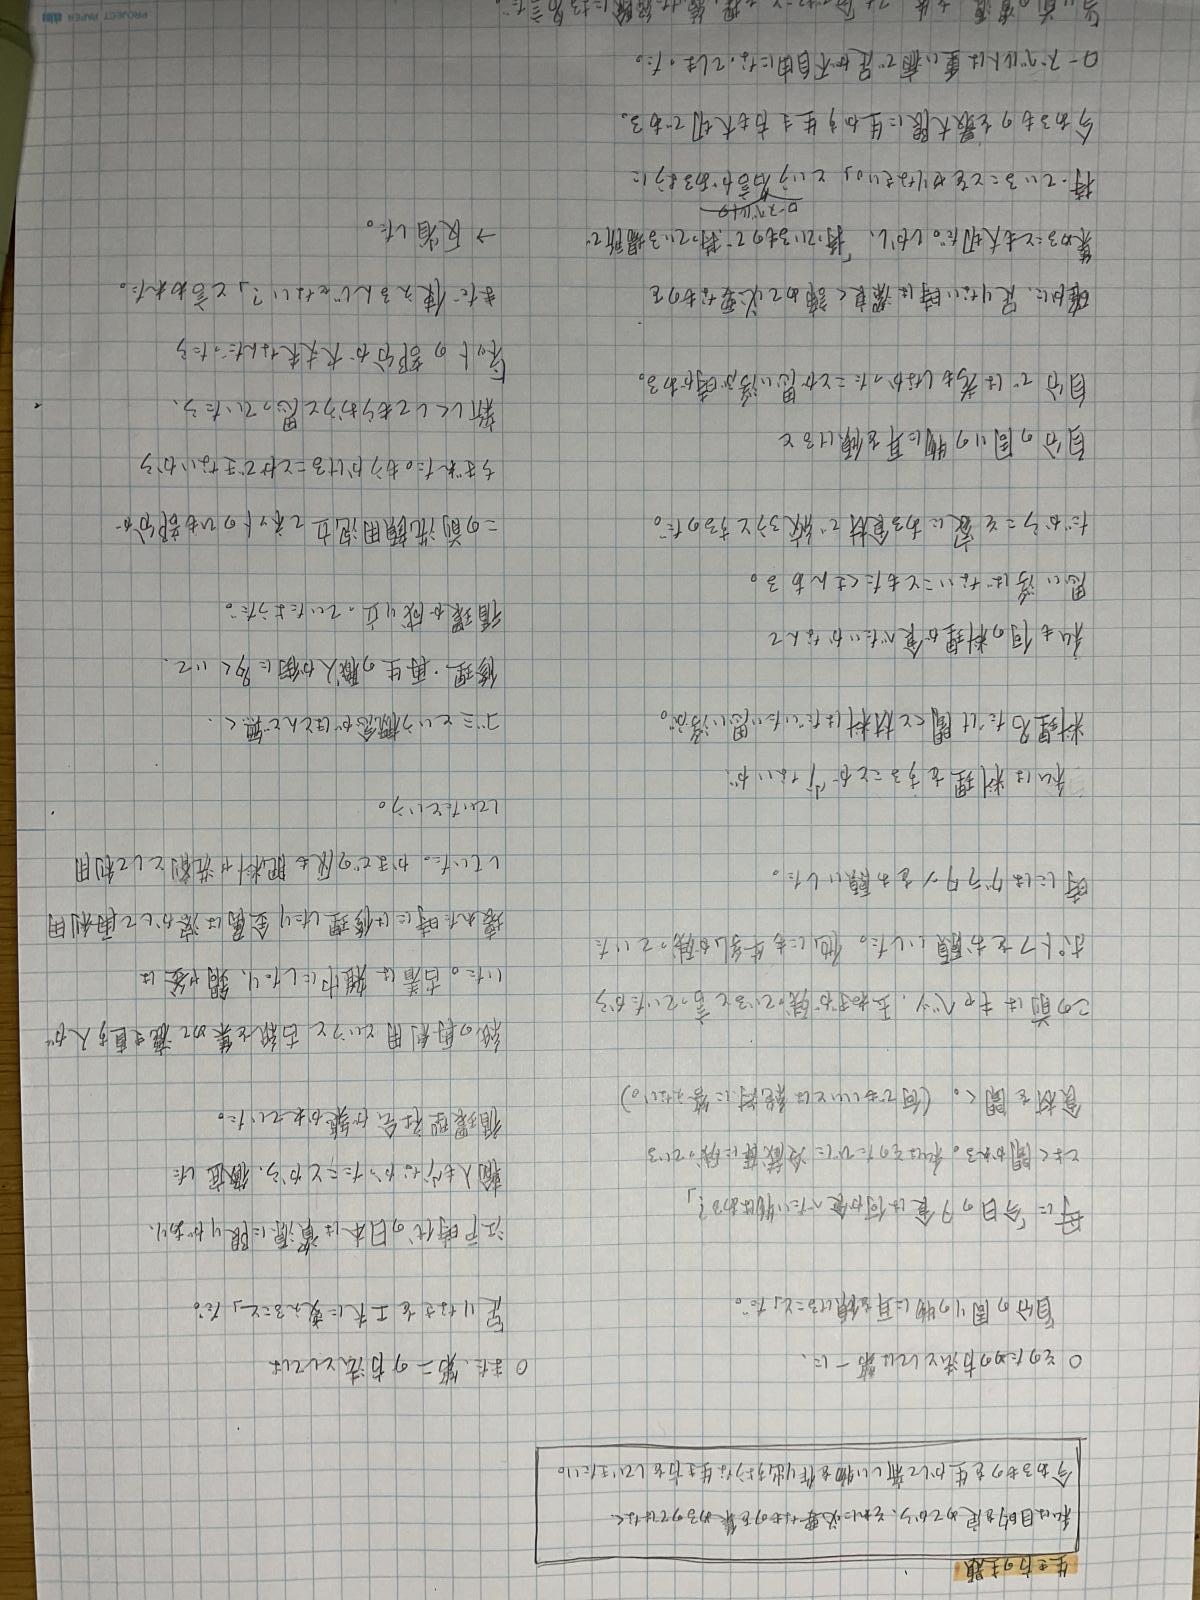 生き方の主題
私は目的を定めてから、それに必要なものを集めるのではなく
今あるものを生かして新しい物を作り出すような生き方をしていきたい。
○そのための方法としては第一に、
自分の周りの物に耳を傾けること」だ。
母に「今日の夕食は何か食べたい物はある?」
とよく聞かれる。私はそのたびに冷蔵庫に残っている
食材を聞く。(何でもいいとは絶対に答えない。)
この前はキャベツ、玉ねぎが残っていると言っていたから
ポトフをお願いした。他にも牛乳が残っていた
時にはグラタンをお願いした。
私は料理をすることが少ないが、
料理名だけ聞くと材料はだいたい思い浮ぶ。
私も何の料理が食べたいかなんて
思い浮ばないこともたくさんある。
だからこそ家にある食材で作ろうとするのだ。
自分の周りの物に耳を傾けると
自分では考えもしなかったことが思い浮ぶ時がある。
確かに、足りない時は潔く諦めて必要なものを
集めることも大切だ。しかし、「持っているもので、持っている場所で
ローズベルトの
持っていることをやりなさい。」という名言があるように
今あるものを最大限に生かす生き方も大切である。
ローズベルトは重い病で足が不自由になってしまった。
○また、第二の方法としては
足りなさを工夫に変えること」だ。
江戸時代の日本は資源に限りがあり、
輸入も少なかったことから、徹底した
循環型社会が築かれていた。
紙の再利用というと古紙を集めて漉き直す人が
いた。古着は雑巾にしたり、鍋や釜は
壊れた時には修理したり金属は溶かして再利用
していた。かまどの灰も肥料や洗剤として利用
していたという。
ゴミという概念がほとんど無く、
修理・再生の職人が街に多くいて、
循環が成り立っていたようだ。
この前洗顔用泡立てネットのひも部分が
ちぎれた。もうかけることができないから
新しくしてもらおうと思っていたら、
「ネットの部分が大丈夫なんだったら
まだ使えるんじゃない?」と言われた。
→反省した。
PROJECT PAPER